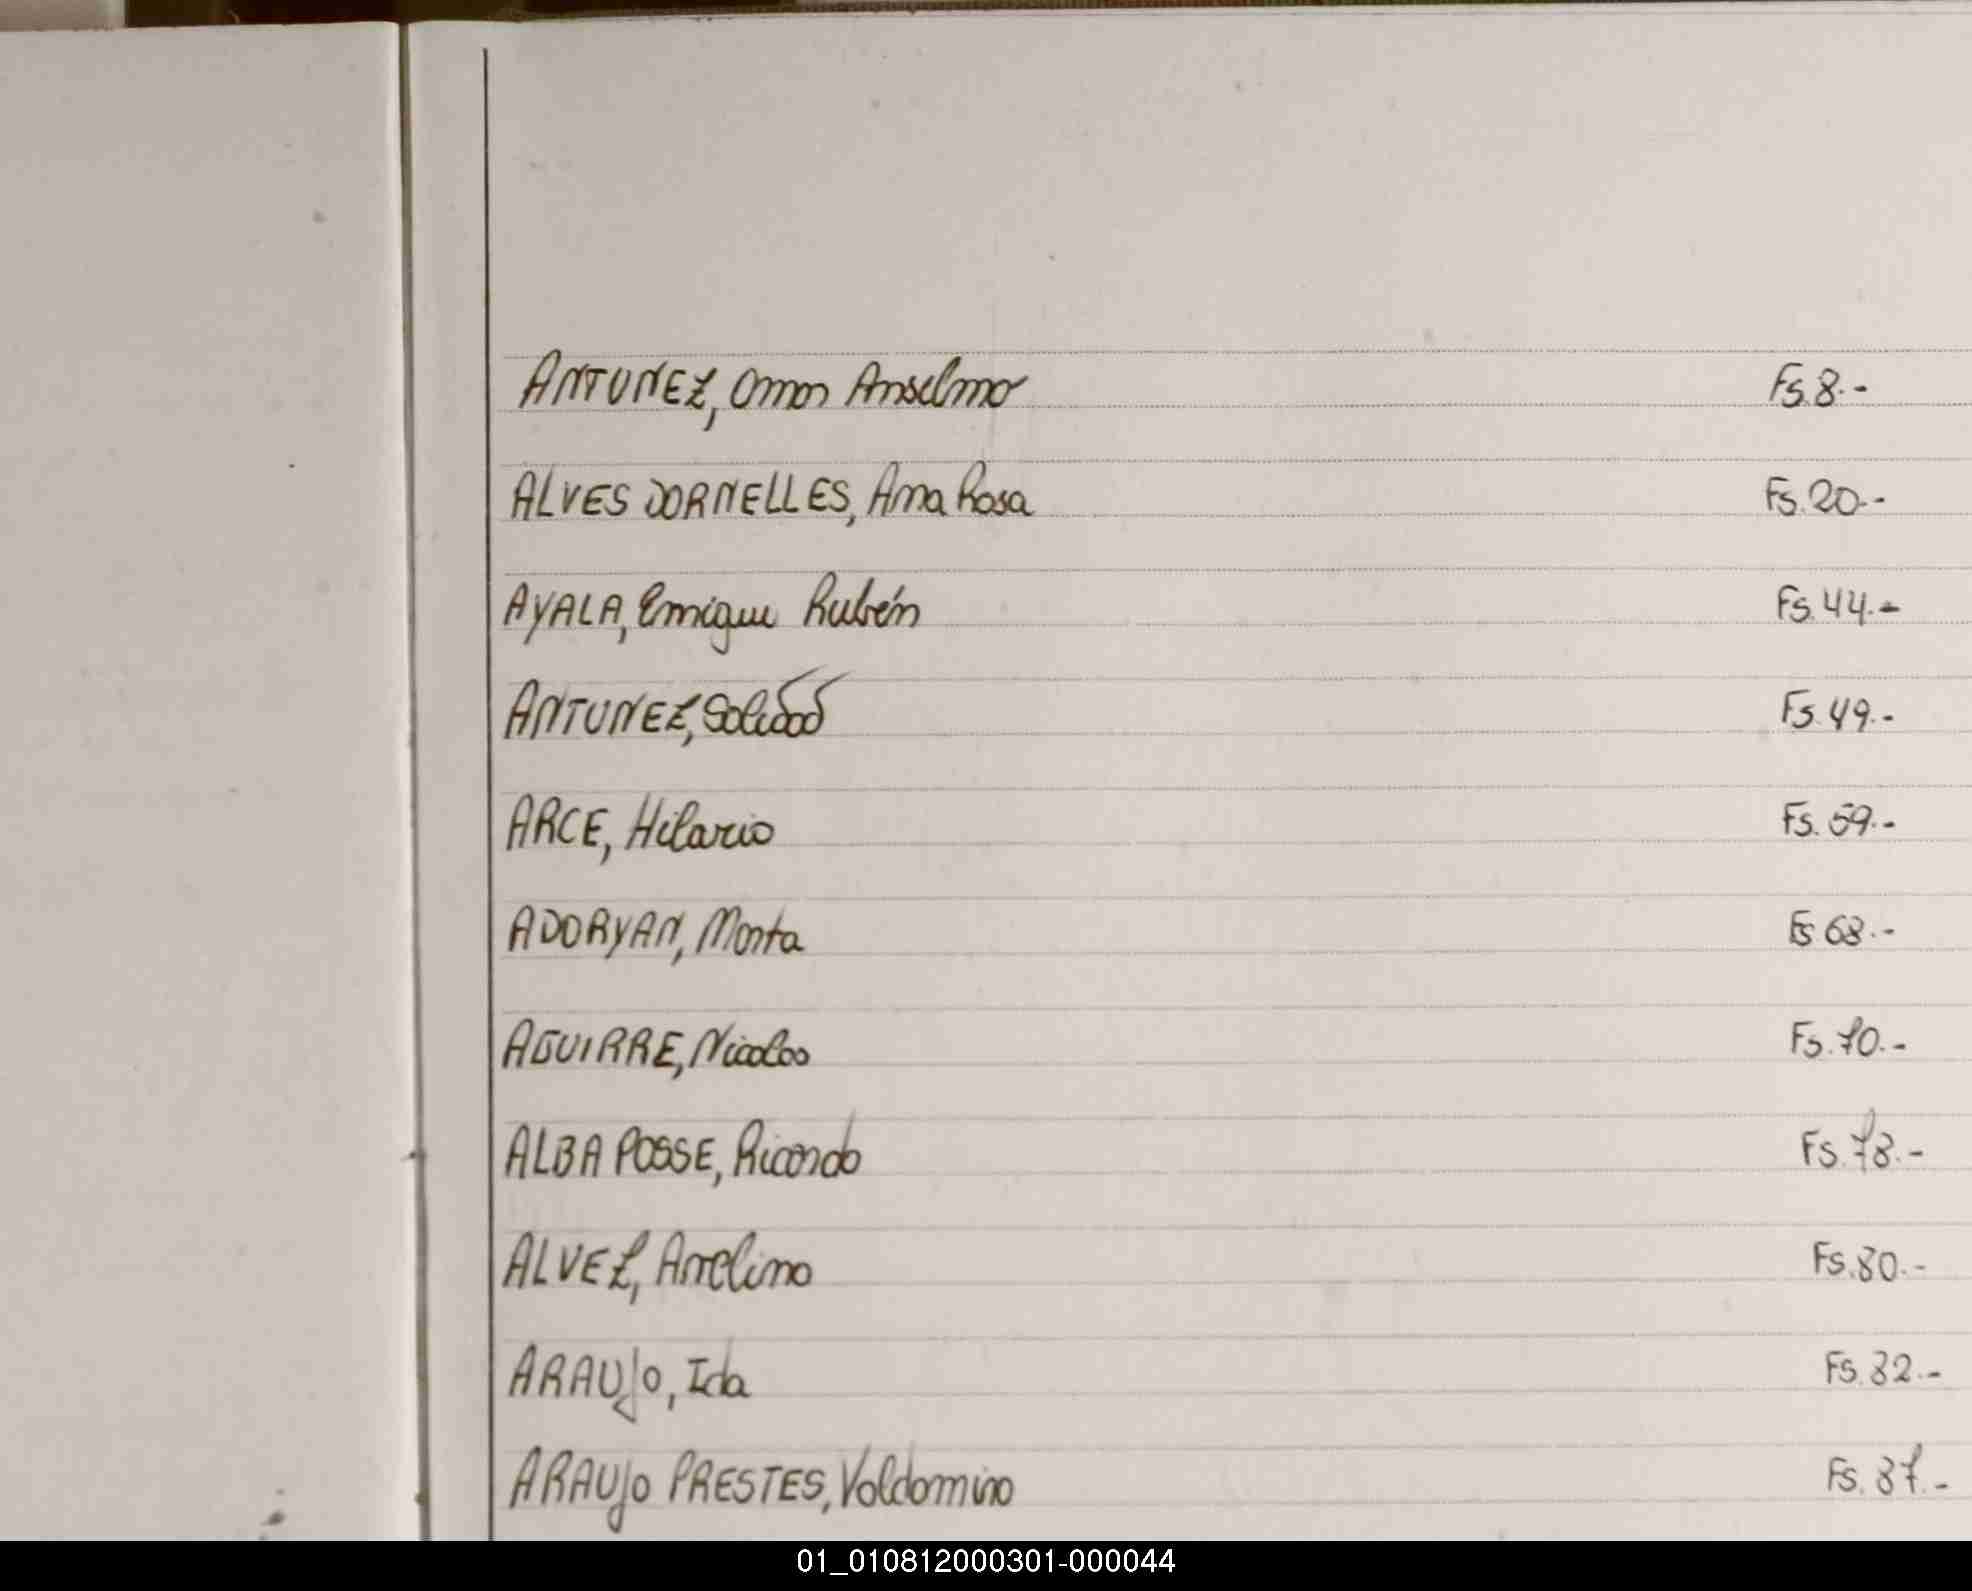 ANTUNEZ, Omar Anselmo Fs.8.-
ALVES DORNELLES, Ana Rosa Fs.20.-
AYALA, Enrique Rubén Fs.44.-
ANTUNEZ, Soledad Fs.49.-
ARCE, Hilario Fs.59.-
ADORYAN, Marta Fs.68.-
AGUIRRE, Nicolas Fs.70.-
ALBA POSSE, Ricardo Fs.78.-
ALVEZ, Avelino Fs.80.-
ARAUJO, Ida Fs.82.-
ARAUJO PRESTES, Valdomiro Fs.87.-
01_010812000301-000044